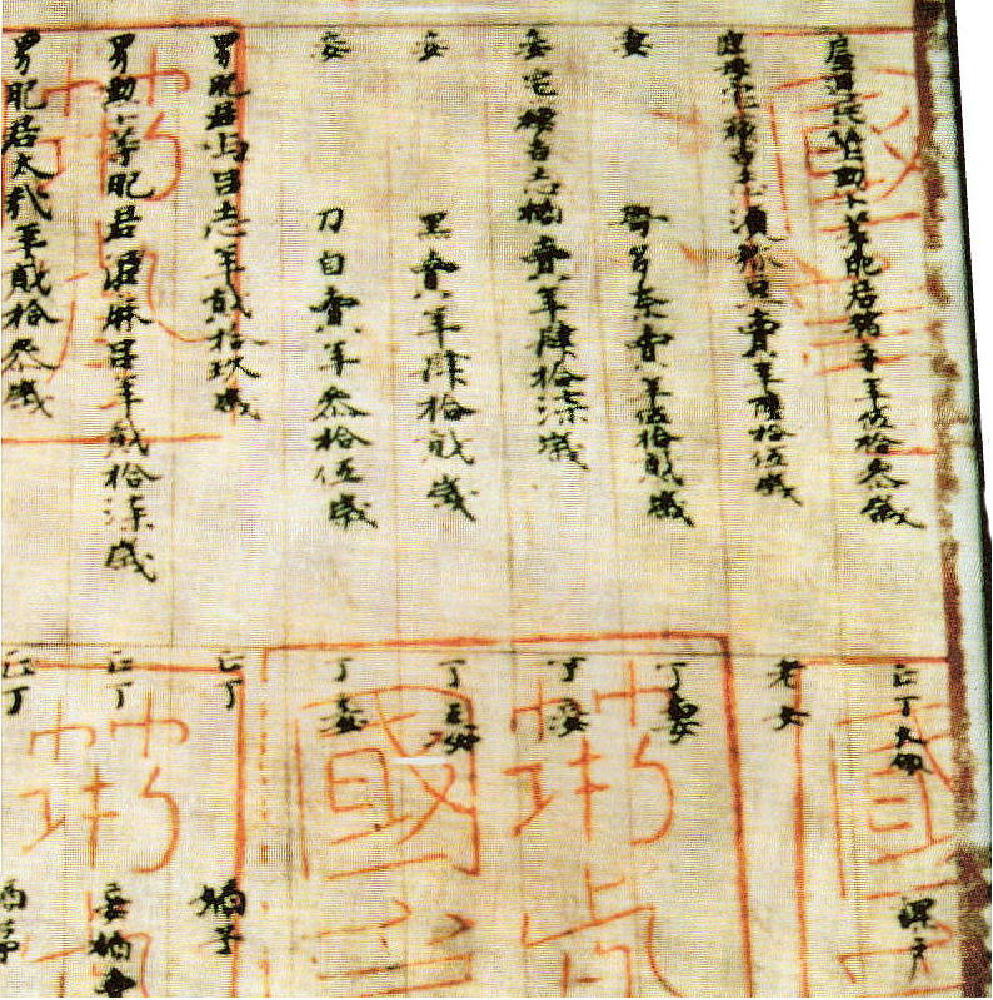 戸主追正八位上勲十等肥君猪手年伍拾參歳
庶母宅蘇吉志須弥豆賣年陸拾伍歳
妻 哿多奈賣年伍拾貳歳
妾宅蘇吉志橘賣年肆拾漆歳
妾 黒賣年肆拾貳歳
妾 刀自賣年參拾伍歳
男肥君与呂志年貳拾玖歳
男勲十等肥君泥麻呂年貳拾漆歳
男肥君太哉年貳拾參歳
正丁大領
老女
丁妻
丁妾
丁妾
丁妾
正丁
正丁
正丁
課戸
嫡子
妾橘賣
嫡弟